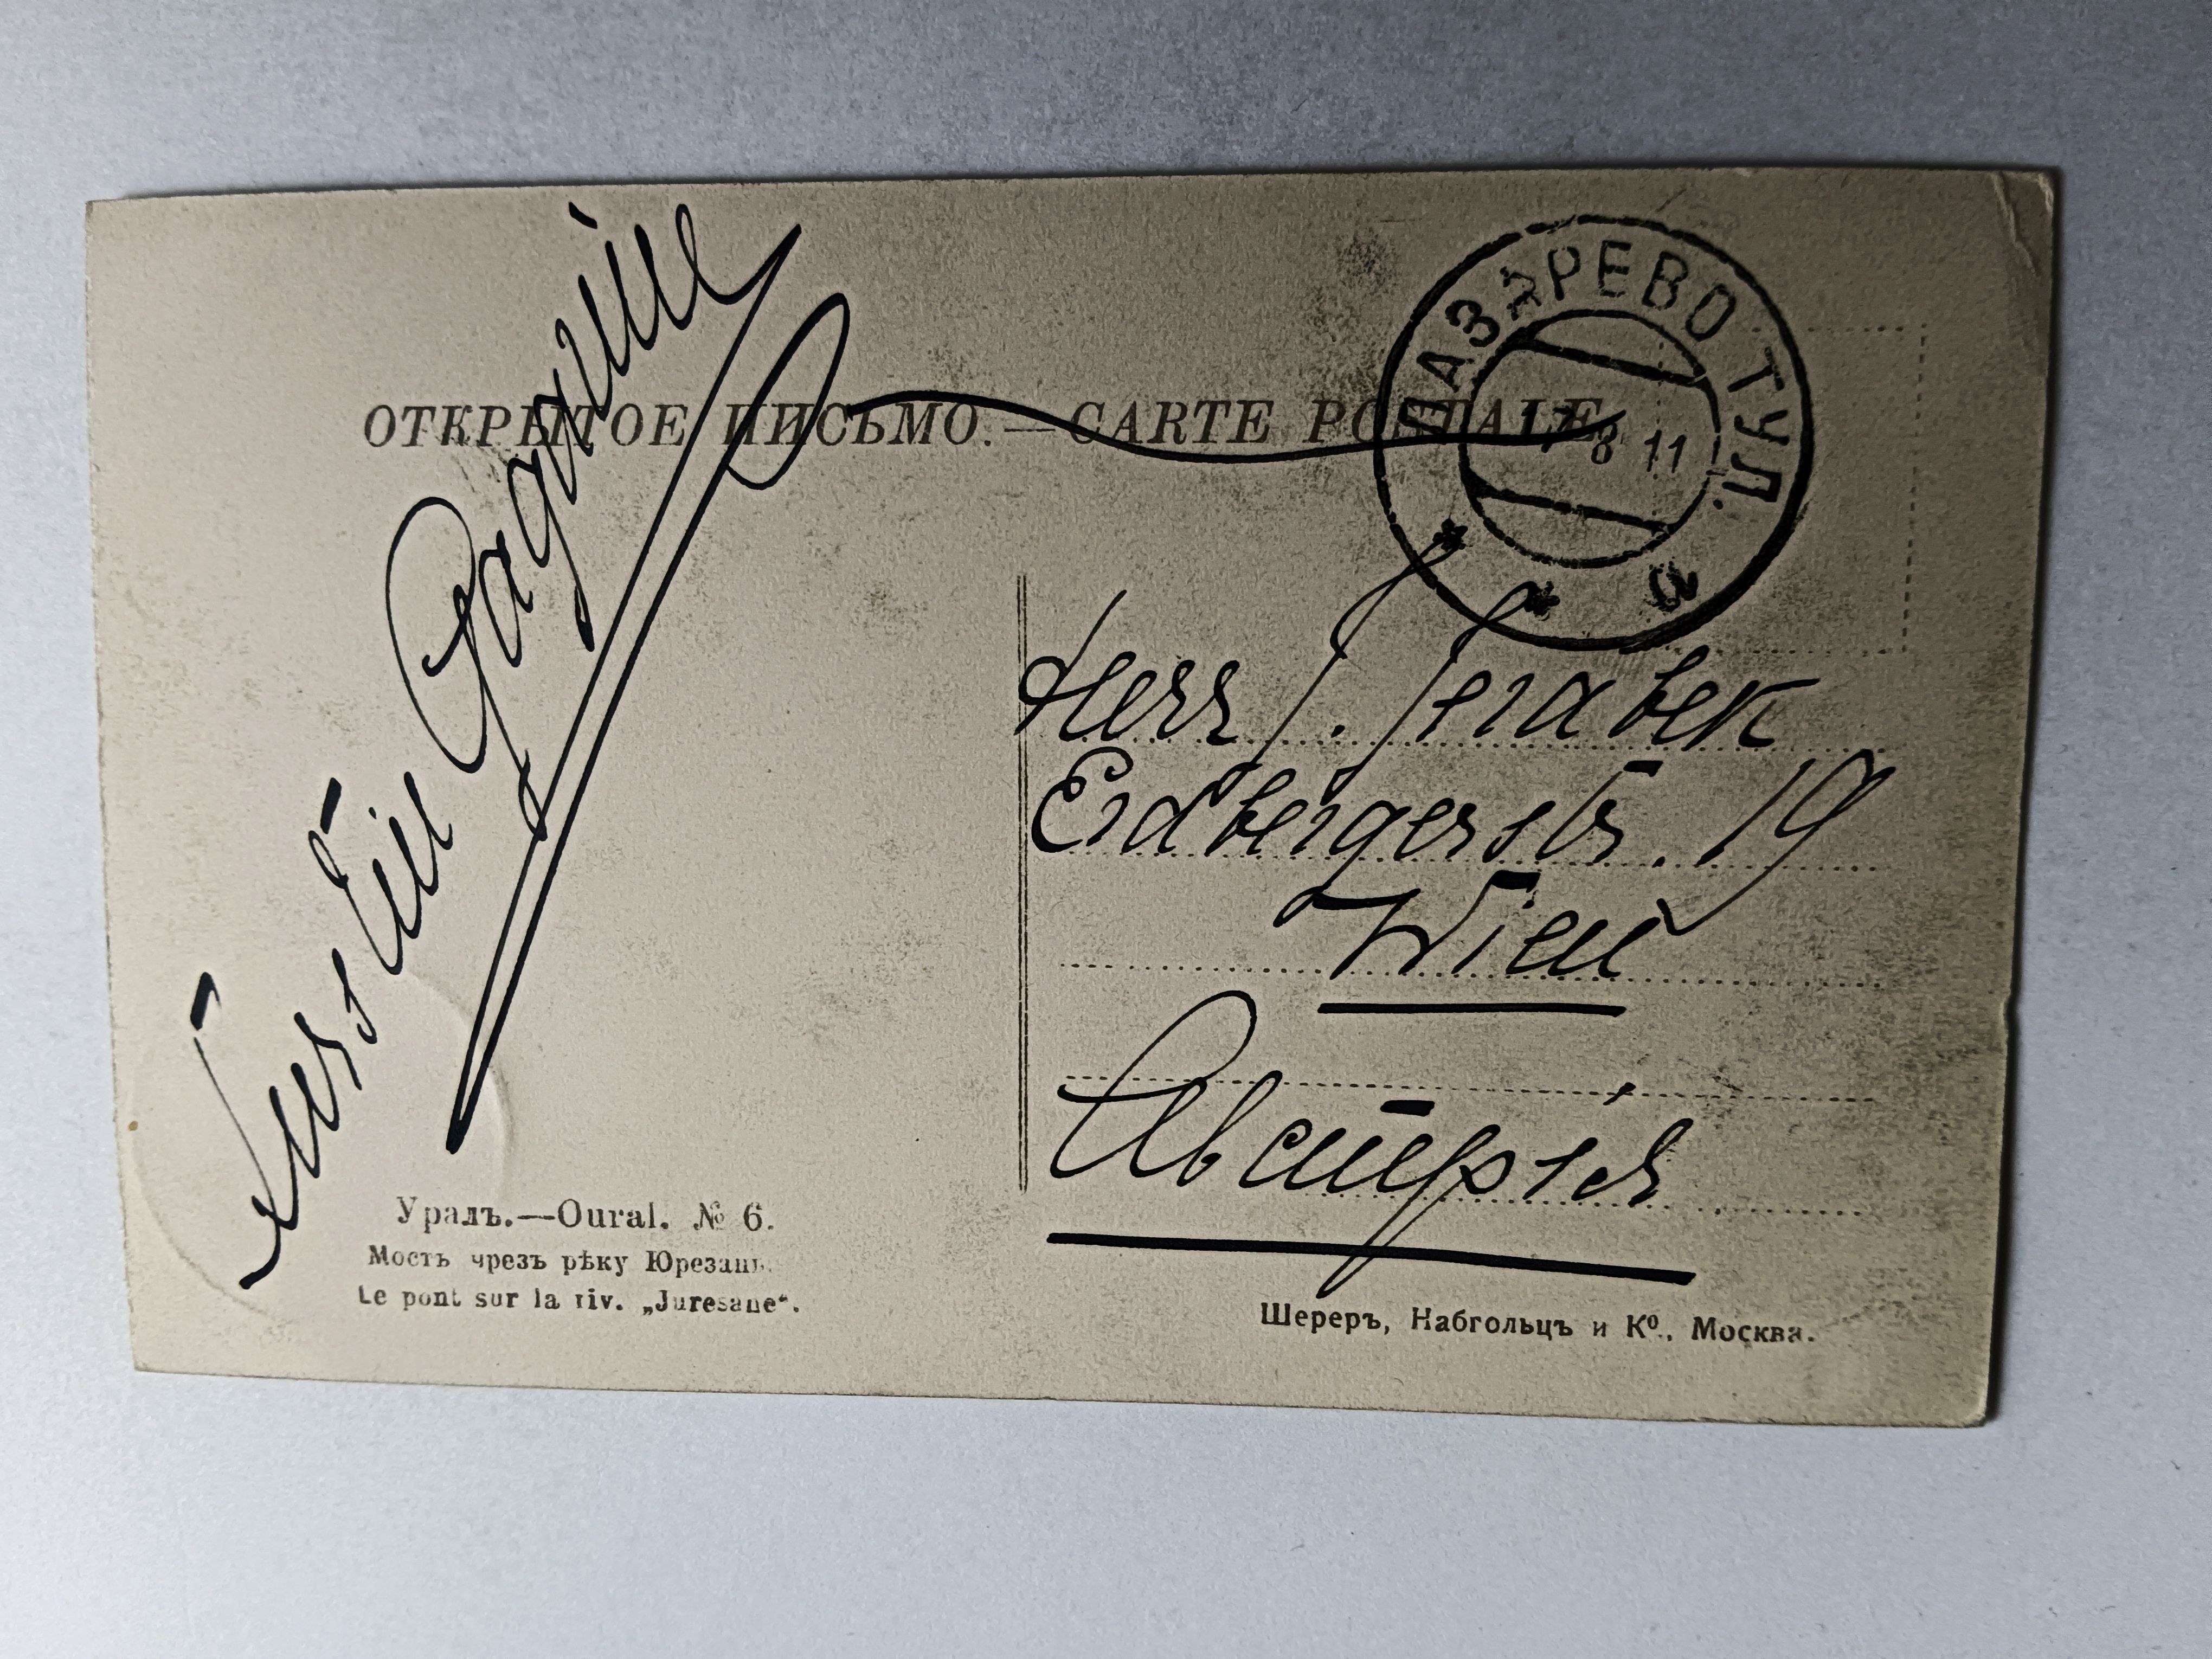 ОТКРЫТОЕ ПИСЬМО.—CARTE POSTALE.
ЛАЗАРЕВО ТУЛ.
17 8 11
Herr J. Jerabek
Erdbergerstr. 19
Wien
Австрія
Уралъ.—Oural. № 6.
Мостъ чрезъ рѣку Юрезань.
Le pont sur la riv. „Juresane“.
Шереръ, Набгольцъ и Ко., Москва.